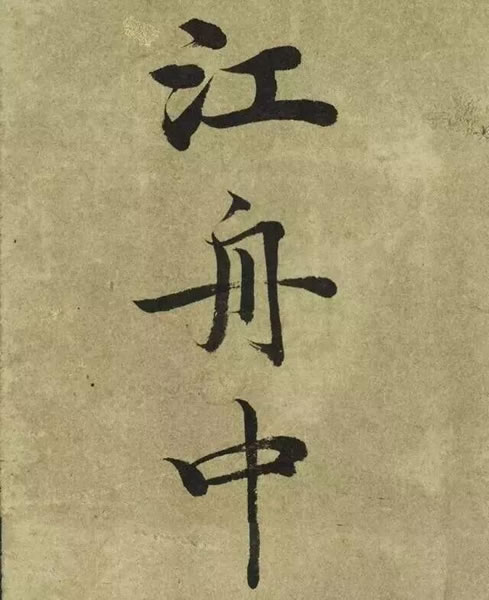 江舟中